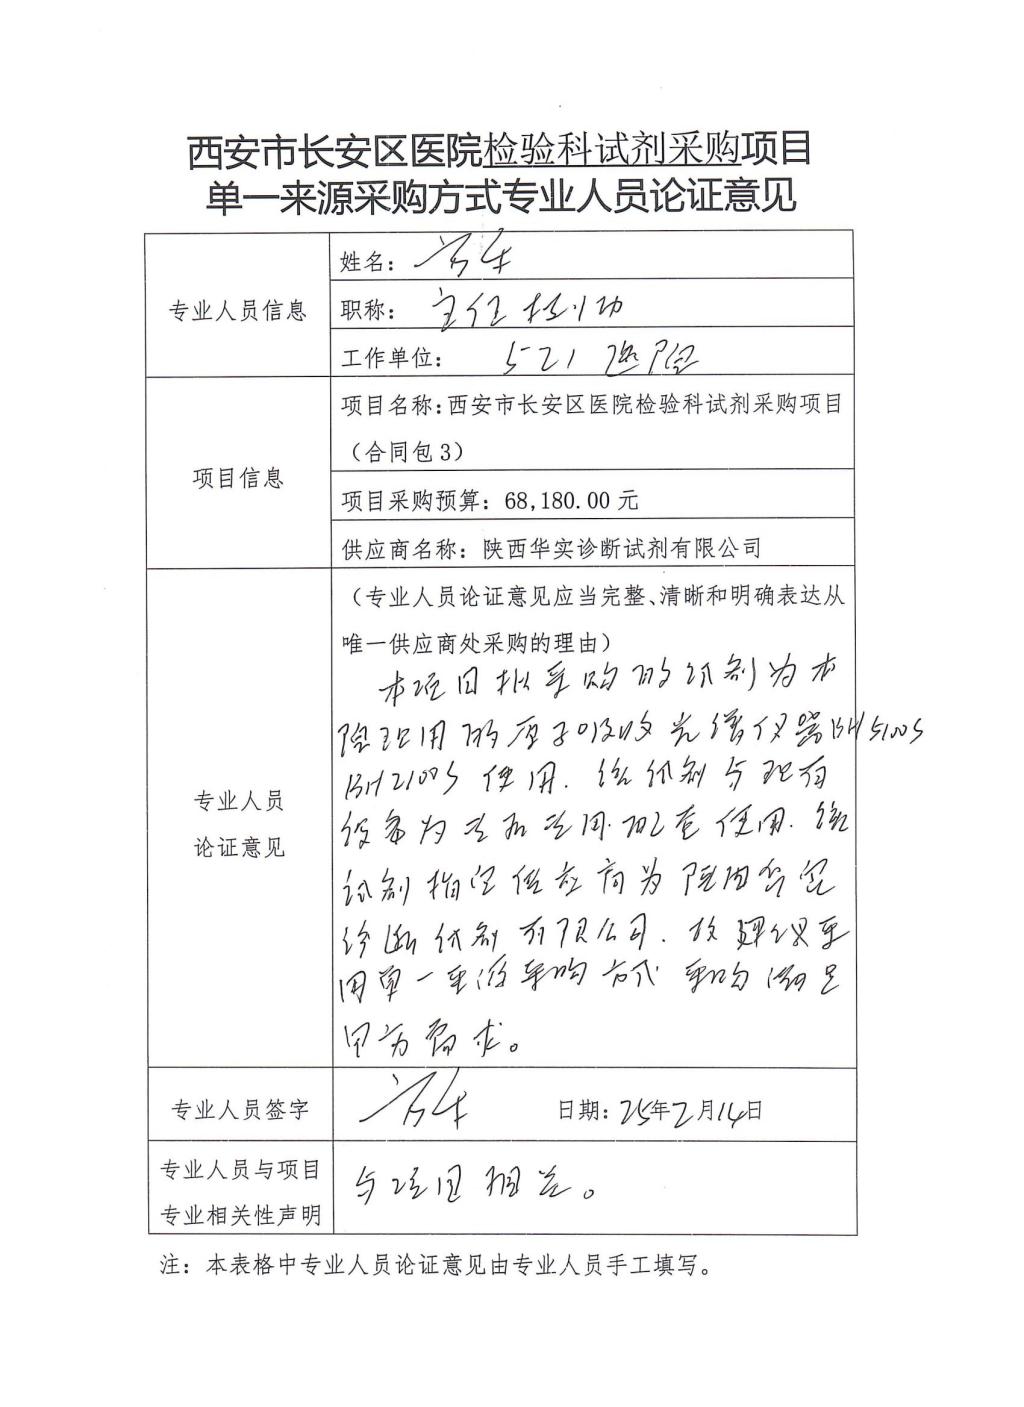 西安市长安区医院检验科试剂采购项目
单一来源采购方式专业人员论证意见
专业人员信息
姓名：
职称：主任技师
工作单位：521医院
项目信息
项目名称：西安市长安区医院检验科试剂采购项目
（合同包3）
项目采购预算：68,180.00元
供应商名称：陕西华实诊断试剂有限公司
专业人员
论证意见
（专业人员论证意见应当完整、清晰和明确表达从
唯一供应商处采购的理由）
本项目拟采购的试剂为本
院现用的原子吸收光谱仪器BH5100S
BH2100S使用.该试剂与现有
设备为专机专用.配套使用.该
试剂指定供应商为陕西华实
诊断试剂有限公司.故建议采
用单一来源采购方式采购满足
甲方需求。
专业人员签字
日期：25年2月14日
专业人员与项目
专业相关性声明
与项目相关。
注：本表格中专业人员论证意见由专业人员手工填写。